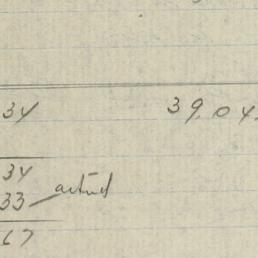 34 39.04
34
33 actual
67